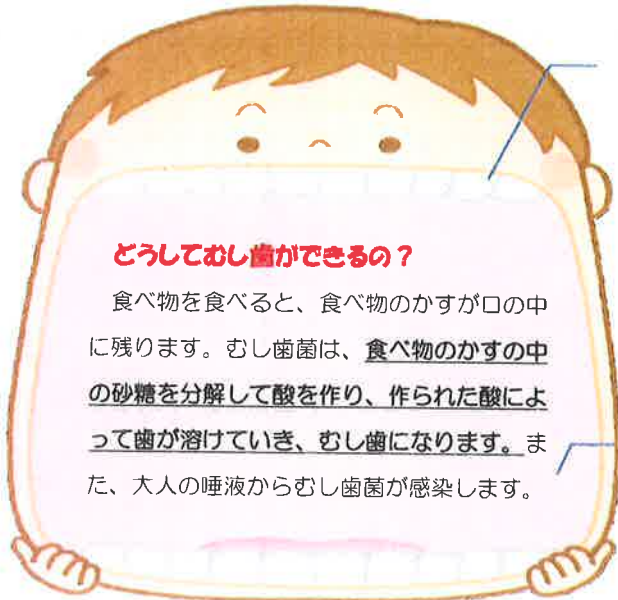 どうしてむし歯ができるの？
　食べ物を食べると、食べ物のかすが口の中
に残ります。むし歯菌は、食べ物のかすの中
の砂糖を分解して酸を作り、作られた酸によ
って歯が溶けていき、むし歯になります。ま
た、大人の唾液からむし歯菌が感染します。